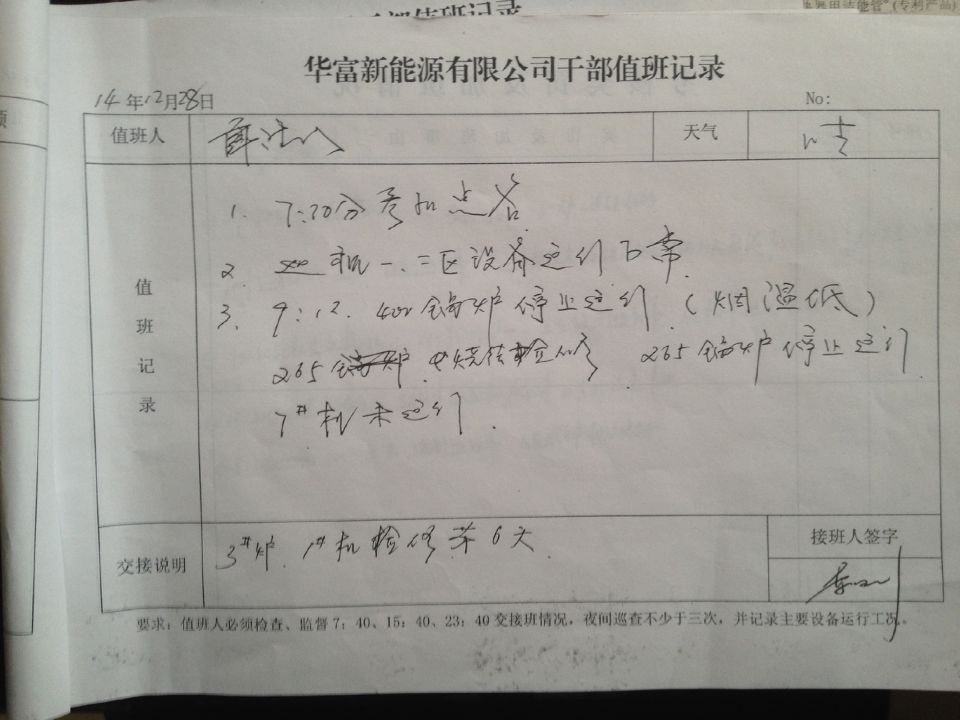 华富新能源有限公司干部值班记录
14年12月28日
No:
值班人
天气
晴
值班记录
1. 7:30分参加点名
2. 一、二区设备运行正常
3. 9:12. 400锅炉停止运行（烟温低）
265 烧结检修 265锅炉停止运行
7#机未运行.
交接说明
3#炉. 1#机检修第6天
接班人签字
要求：值班人必须检查、监督7：40、15：40、23：40交接班情况，夜间巡查不少于三次，并记录主要设备运行工况。